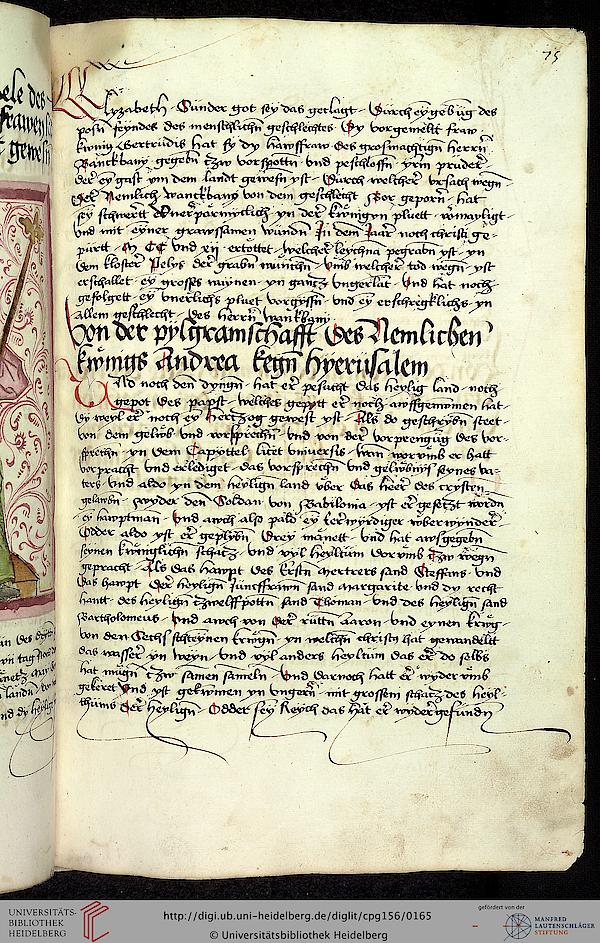 75
Elyzabeth · Sunder got sey das geclagt · Durch ey gebug des
posn feyndes des menschlichn geschlechtes · Dy vorgemeltt fraw
kwnig Gertrudis hat sy dy hawsfraw des grosmachtign herrn
Banckbany gegebn czw vorspottn vnd peschloffn yrm pruder
der ey gast ynn dem landt gewesn yst · Durch welcher vrsach wegn
der Nemlich wanckbany von dem geschlecht Bor geporn · hat
sey schwertt yn der kwnigyn pluett ·
vnd mit eyner grawssamen wundn Jn dem Jaar noch christi ge
purtt · M CC vnd xij · ertottet · welcher leychna pegrabn yst · yn
dem kloster Pelys der grabn munichn · vmb welcher tod wegn · yst
erschallet · ey grosses waynen · yn gantz vngerlat · Vnd hat noch
gefolgett · ey vnerlichs pluet vorgyssn · vnd ey erschregklichs · yn
allem geschlecht · des herrn wanckbany
Von der pylgramschafft des Nemlichen
kwnigs Andrea kegn hyerusalem
Vnd noch den dyngn · hat er pesucht das heylig land · noch
gepot des papst · welches gepott er noch awffgenommen hat
dy weyl er noch ey Hertzog gewest yst · Als do geschrybn steet
von dem gelub vnd vorsprechn · vnd von der vorprengug des vor
sprechn · yn dem Capyttel · licet vniuersis · wen worvmb er hatt
vorpracht vnd erlediget · das vorsprechn vnd gelubnys seynes va
ters · vnd aldo yn dem heylign land vber das heer des crysten
gelawbn · wyder den Soldan von Babilonia · yst er gesetzt wordn
ey hawptman · Vnd awch also pald ey erwirdiger vberwynder
Odder aldo yst er geplybn drey manett · vnd hat awsgegebn
seynen kwniglichn schatz · vnd vyl heyltum dorvmb czw wegn
gepracht · Als das hawpt des ersten Mertrers sand Steffans · vnd
das hawpt der heylign Junckfrawn sand margarite vnd dy recht
hantt · des heylign tzwelffpottn sand Thoman · vnd des heylign sand
Bartholomeus · Vnd awch von der ruttn Aaron · vnd eynen krug
von den Sechs steynen krwgn · yn welchn christg hat gewandeltt
das wasser yn weyn · vnd vyl anders heyltum das er do selbs
hat mugn czw samen sameln · Vnd darnoch hatt er wyder vmb
gekeret Vnd yst gekwmen yn vngern · mit grossem schatz des heyl
thums der heylign · Odder sey Reych das hat er wyder gefundn
UNIVERSITÄTS-
BIBLIOTHEK
HEIDELBERG
http://digi.ub.uni-heidelberg.de/diglit/cpg156/0165
© Universitätsbibliothek Heidelberg
gefördert von der
MANFRED
LAUTENSCHLÄGER
STIFTUNG